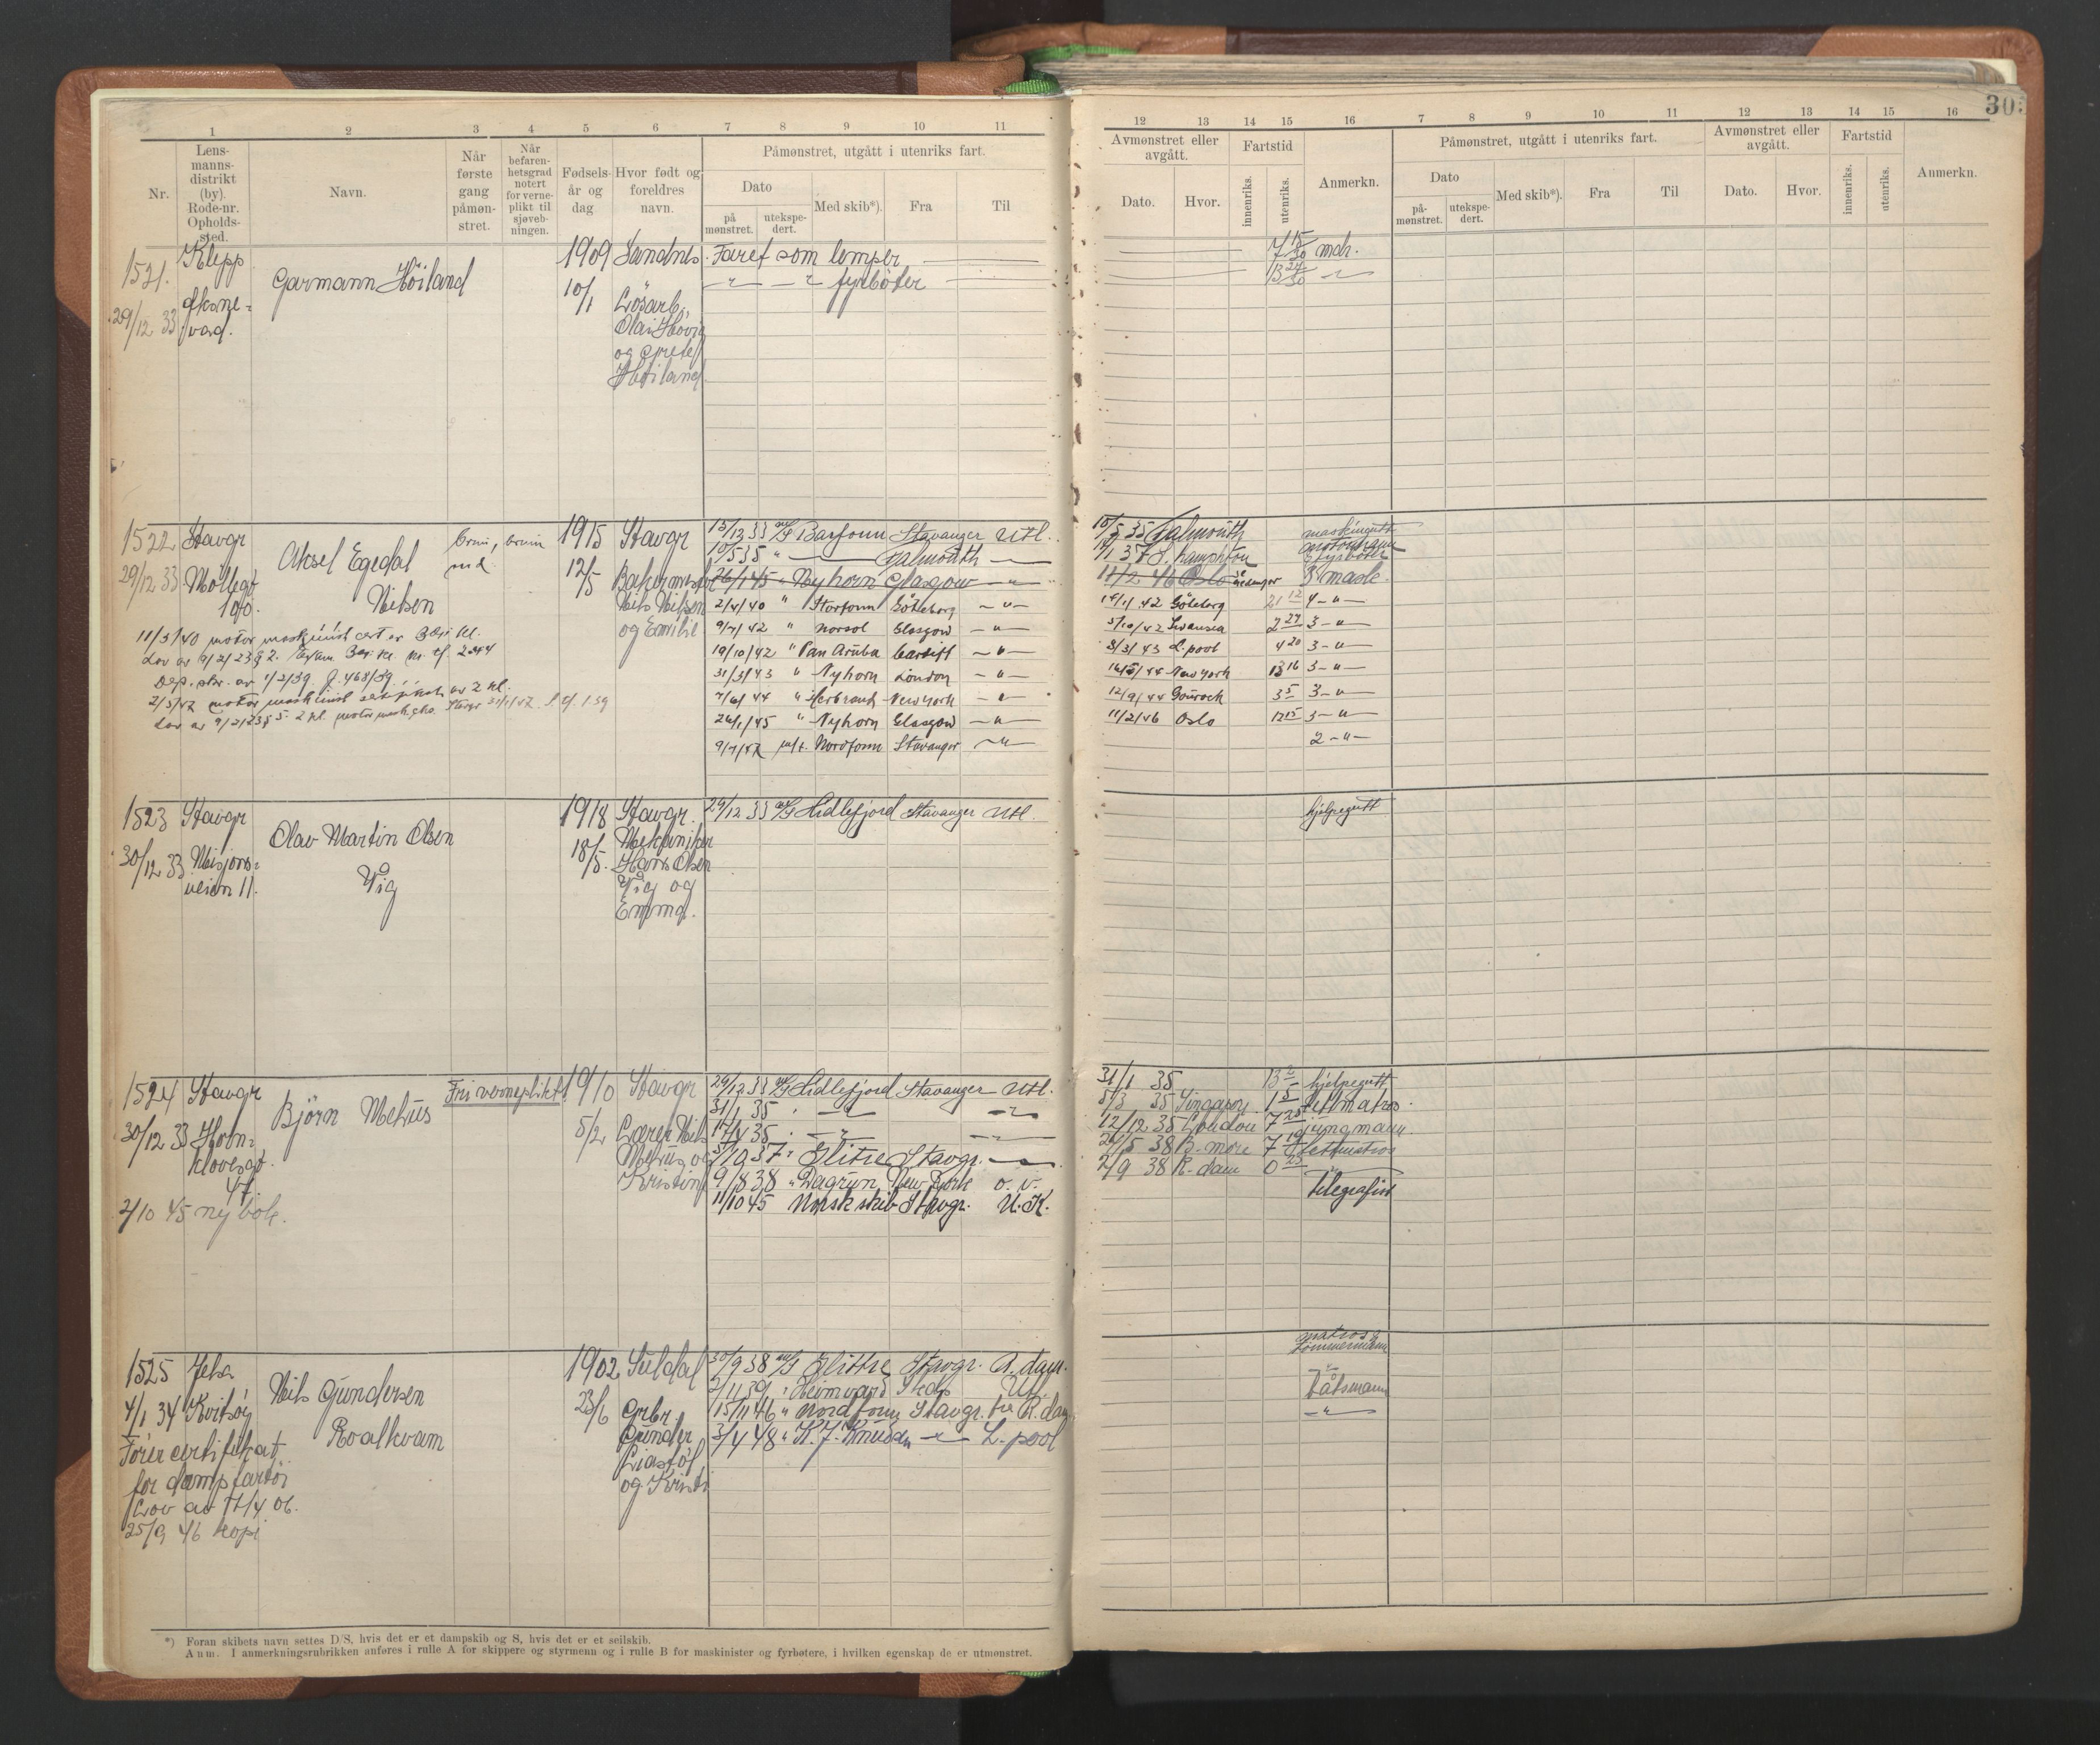 303
1 2 3 4 5 6 7 8 9 10 11
12 13 14 15 16 7 8 9 10 11 12 13 14 15 16
Nr.
Lens-
manns-
distrikt
(by).
Rode-nr.
Opholds-
sted.
Navn.
Når
første
gang
påmøn-
stret.
Når
befaren-
hetsgrad
notert
for verne-
plikt til
sjøveb-
ningen.
Fødsels-
år og
dag
Hvor født og
foreldres
navn.
Påmønstret, utgått i utenriks fart.
Dato
på
mønstret.
utekspe-
dert.
Med skib*).
Fra
Til
Avmønstret eller
avgått.
Dato.
Hvor.
Fartstid
innenriks.
utenriks.
Anmerkn.
Påmønstret, utgått i utenriks fart.
Dato
på-
mønstret.
utekspe-
dert.
Med skib*).
Fra
Til
Avmønstret eller
avgått.
Dato.
Hvor.
Fartstid
innenriks.
utenriks.
Anmerkn.
1521.
29/12 33
Klepp
Garmann Höiland
1909
10/1
Sandnes.
Lösarb.
og Grete
Höiland.
Faret som lemper
fyrböter
7 15/30 mdr.
13 24/30
1522
29/12 33
Stavgr
Möllegt
100.
Aksel Egedal
Nilsen
1915
12/5
Stavgr
Bakermester
Nils Nilsen
og Emilie
11/3/40 motor maskinist cert av 3dje kl.
Lov av 9/2/23 § 2.
13/12 33 M/S Barfonn Stavanger Utl.
10/5 35 " Falmouth
26/1 45 " Nyhorn Glasgow
2/4/40 " Storfonn Göteborg
9/7/42 " Norsol Glasgow
19/10/42 " Pan Aruba Cardiff
31/3/43 " Nyhorn London
7/6/44 " Herbrand New York
26/1/45 " Nyhorn Glasgow
9/7/47 m/t. Nordfonn Stavanger
10/5 35 Falmouth maskingutt
motormann
11/2 46 Oslo 3 mask.
Göteborg 21 12 4
5/10/42 Swansea 2 27 3
8/3/43 L.pool 4 20 3
New York 13 16 3
12/9/44 Gourock 3 5 3
11/2/46 Oslo 12 15 3
2
1523
30/12 33
Stavgr
Misjons-
veien 11.
Olav Martin Olsen
Vig
1918
18/5.
Stavgr.
Mekaniker
Hans Olsen
Vig og
Emma.
29/12 33 M/S Lidlefjord Stavanger Utl.
hjelpegutt
1524
30/12 33
Stavgr
Horn-
klovegt.
2/10 45 ny bok.
Björn Mehus
Fri verneplikt!
1910
5/2
Stavgr
Lærer Nils
Mehus og
Kristine
29/12 33 M/S Lidlefjord Stavanger Utl.
31/1 35
17/4 35
3/10 37 " Glitre Stavgr.
9/8 38 " Dagrun New York o. v.
11/10 45 Norsk skib Stavgr. U.K.
31/1 35 13 2 hjelpegutt
5/3 35 Singapory 1 5 lettmatros.
12/12 35 London 7 25 jungmann
24/5 38 B.more 7 19 lettmatros
2/9 38 R.dam 0 23
telegrafist
1525
4/1 34
Jelsa
Kvitsöy
Nils Gundersen
Roalkvam
Fører certifikat
for dampfartöi
Lov av 17/4 06.
25/9 46 kopi
1902
23/6
Suldal
Grbr
Gunder
Liastöl
og Kristi
30/9 38 M/S Glittre Stavgr. R.dam.
2/11 39 " Heimvard Steds Utl.
15/11 46 " Nordfonn Stavgr. fra R.dam
3/4 48 " K.J. Knudsen L.pool
matros &
tömmermann
Båtsmann
*) Foran skibets navn settes D/S, hvis det er et dampskib og S, hvis det er et seilskib.
Anm. I anmerkningsrubrikken anføres i rulle A for skippere og styrmenn og i rulle B for maskinister og fyrbøtere, i hvilken egenskap de er utmønstret.